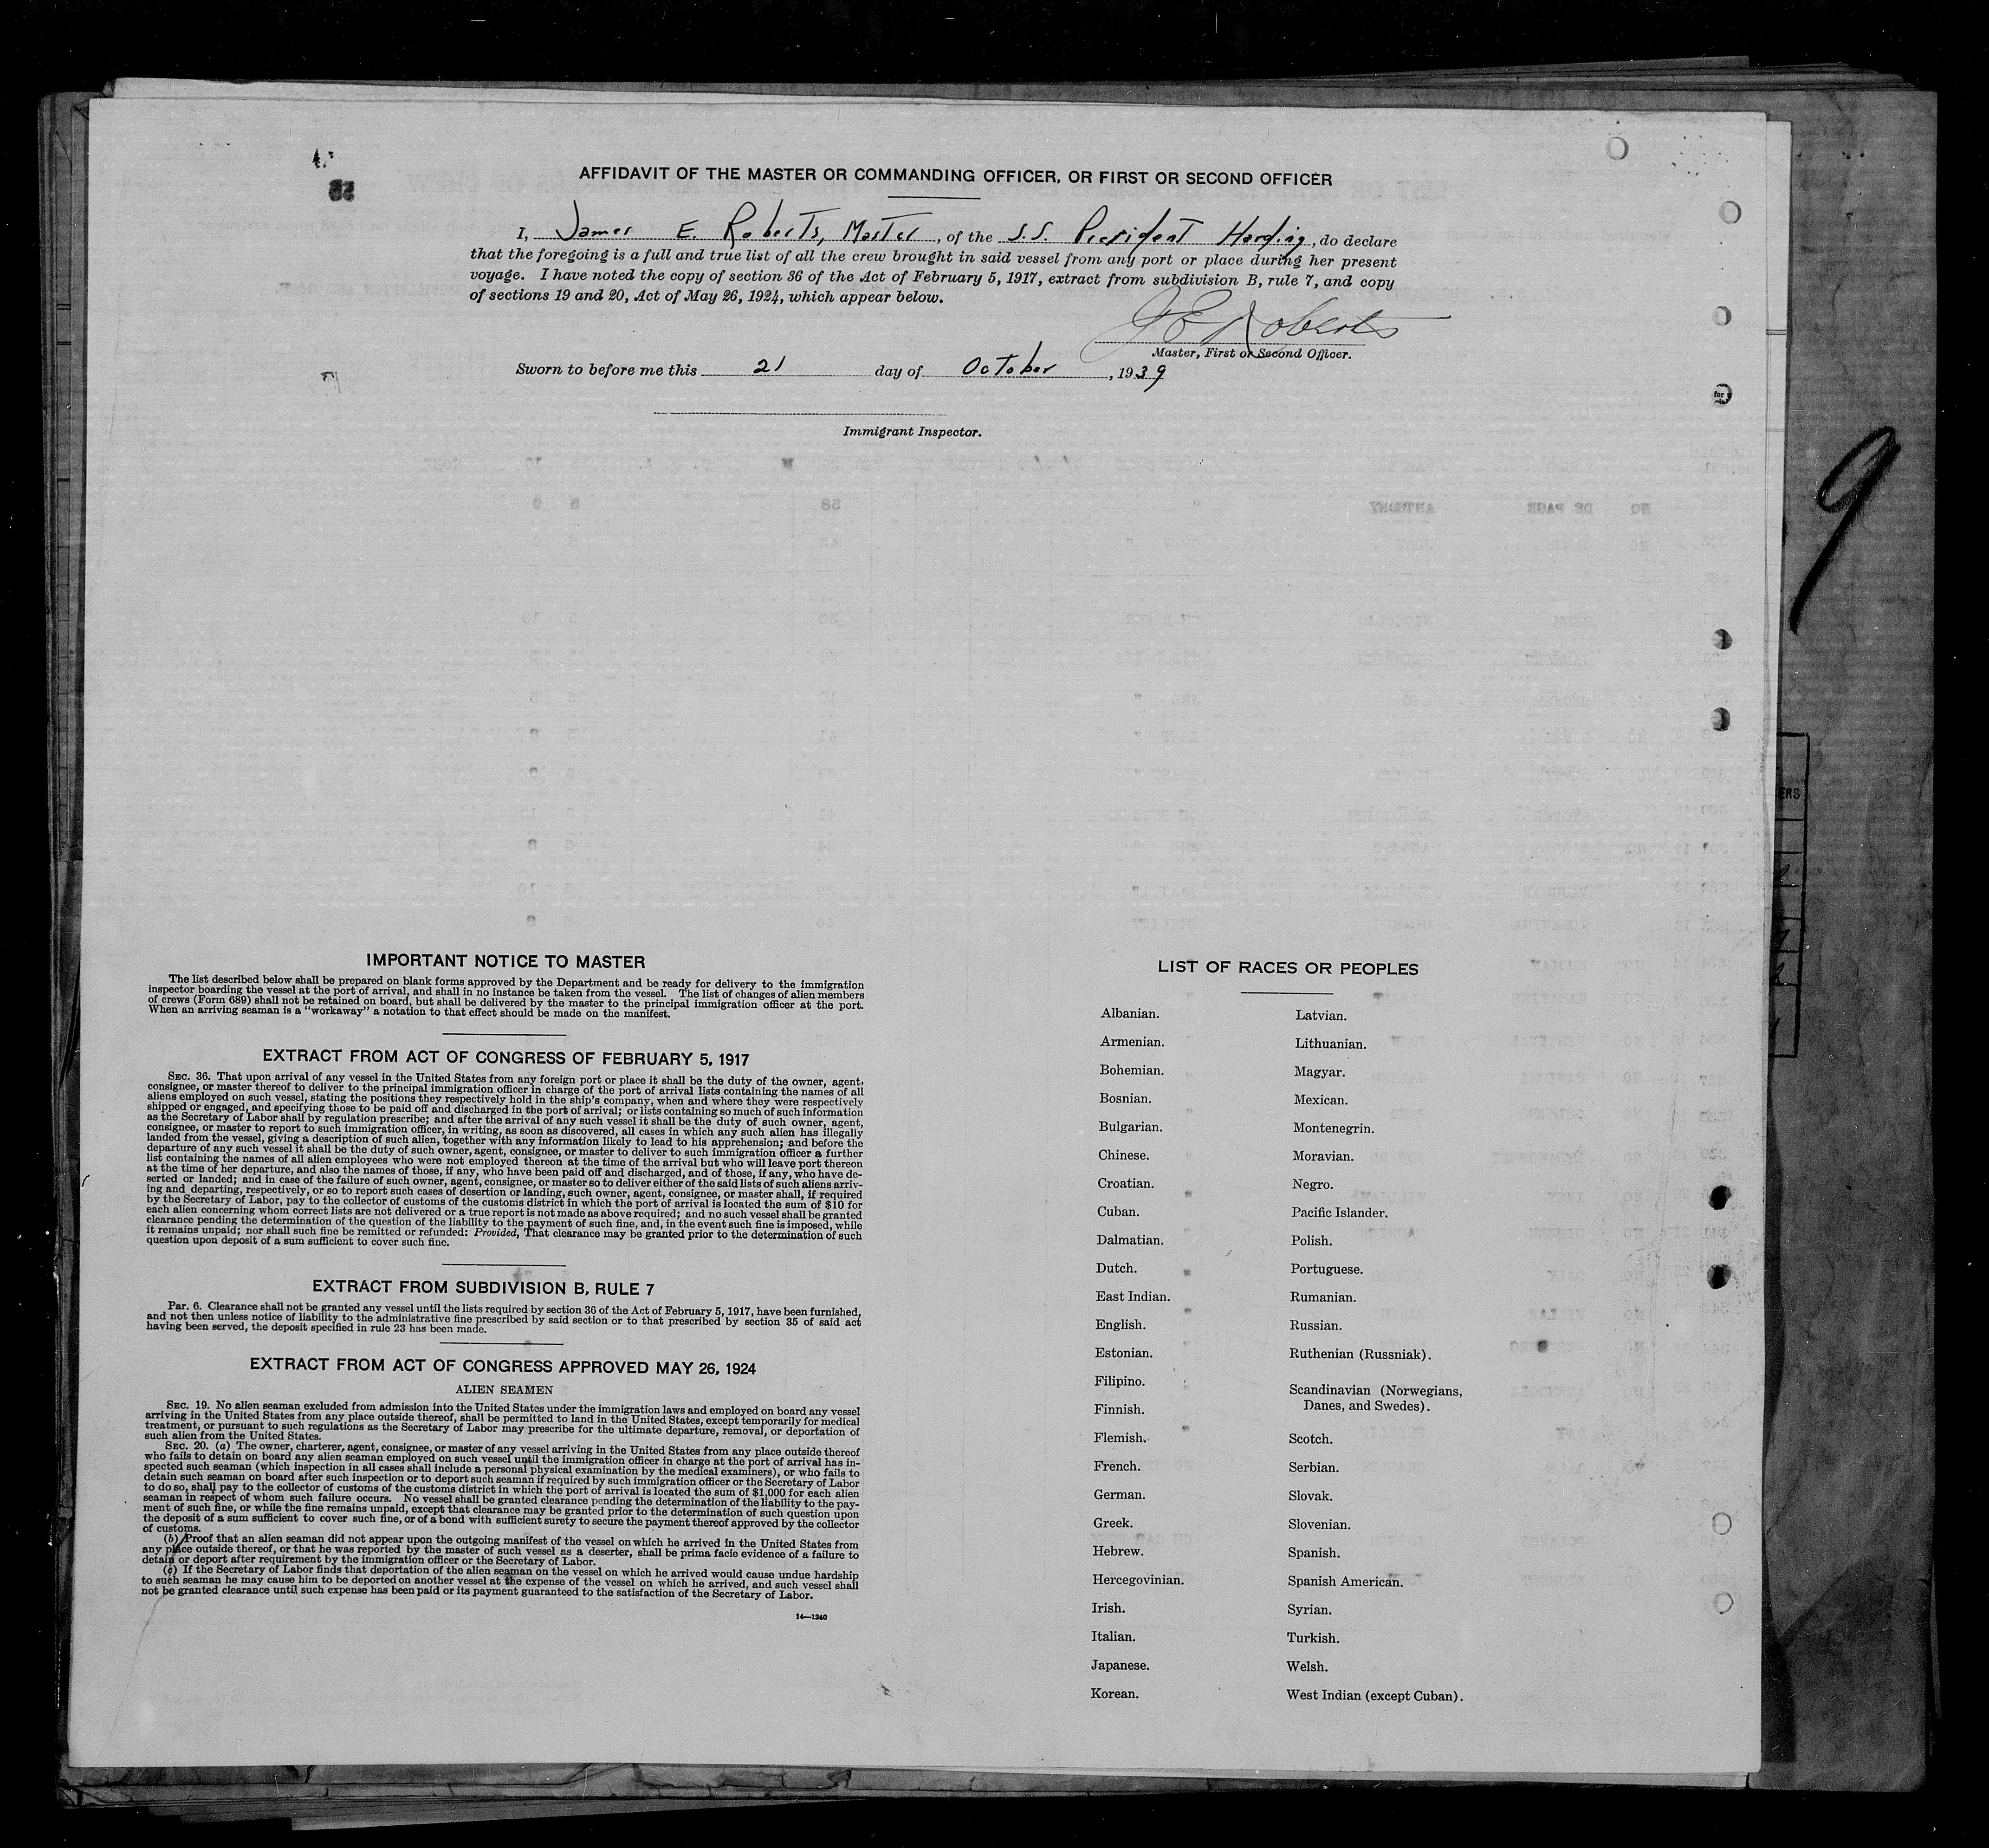 AFFIDAVIT OF THE MASTER OR COMMANDING OFFICER, OR FIRST OR SECOND OFFICER
I, James E. Roberts, Master, of the S.S. President Harding, do declare
that the foregoing is a full and true list of all the crew brought in said vessel from any port or place during her present
voyage. I have noted the copy of section 36 of the Act of February 5, 1917, extract from subdivision B, rule 7, and copy
of sections 19 and 20, Act of May 26, 1924, which appear below.
J E Roberts
Master, First or Second Officer.
Sworn to before me this 21 day of October, 1939
Immigrant Inspector.
9
IMPORTANT NOTICE TO MASTER
The list described below shall be prepared on blank forms approved by the Department and be ready for delivery to the immigration
inspector boarding the vessel at the port of arrival, and shall in no instance be taken from the vessel. The list of changes of alien members
of crews (Form 689) shall not be retained on board, but shall be delivered by the master to the principal immigration officer at the port.
When an arriving seaman is a "workaway" a notation to that effect should be made on the manifest.
EXTRACT FROM ACT OF CONGRESS OF FEBRUARY 5, 1917
SEC. 36. That upon arrival of any vessel in the United States from any foreign port or place it shall be the duty of the owner, agent,
consignee, or master thereof to deliver to the principal immigration officer in charge of the port of arrival lists containing the names of all
aliens employed on such vessel, stating the positions they respectively hold in the ship's company, when and where they were respectively
shipped or engaged, and specifying those to be paid off and discharged in the port of arrival; or lists containing so much of such information
as the Secretary of Labor shall by regulation prescribe; and after the arrival of any such vessel it shall be the duty of such owner, agent,
consignee, or master to report to such immigration officer, in writing, as soon as discovered, all cases in which any such alien has illegally
landed from the vessel, giving a description of such alien, together with any information likely to lead to his apprehension; and before the
departure of any such vessel it shall be the duty of such owner, agent, consignee, or master to deliver to such immigration officer a further
list containing the names of all alien employees who were not employed thereon at the time of the arrival but who will leave port thereon
at the time of her departure, and also the names of those, if any, who have been paid off and discharged, and of those, if any, who have de-
serted or landed; and in case of the failure of such owner, agent, consignee, or master so to deliver either of the said lists of such aliens arriv-
ing and departing, respectively, or so to report such cases of desertion or landing, such owner, agent, consignee, or master shall, if required
by the Secretary of Labor, pay to the collector of customs of the customs district in which the port of arrival is located the sum of $10 for
each alien concerning whom correct lists are not delivered or a true report is not made as above required; and no such vessel shall be granted
clearance pending the determination of the question of the liability to the payment of such fine, and, in the event such fine is imposed, while
it remains unpaid; nor shall such fine be remitted or refunded: Provided, That clearance may be granted prior to the determination of such
question upon deposit of a sum sufficient to cover such fine.
EXTRACT FROM SUBDIVISION B, RULE 7
Par. 6. Clearance shall not be granted any vessel until the lists required by section 36 of the Act of February 5, 1917, have been furnished,
and not then unless notice of liability to the administrative fine prescribed by said section or to that prescribed by section 35 of said act
having been served, the deposit specified in rule 23 has been made.
EXTRACT FROM ACT OF CONGRESS APPROVED MAY 26, 1924
ALIEN SEAMEN
SEC. 19. No alien seaman excluded from admission into the United States under the immigration laws and employed on board any vessel
arriving in the United States from any place outside thereof, shall be permitted to land in the United States, except temporarily for medical
treatment, or pursuant to such regulations as the Secretary of Labor may prescribe for the ultimate departure, removal, or deportation of
such alien from the United States.
SEC. 20. (a) The owner, charterer, agent, consignee, or master of any vessel arriving in the United States from any place outside thereof
who fails to detain on board any alien seaman employed on such vessel until the immigration officer in charge at the port of arrival has in-
spected such seaman (which inspection in all cases shall include a personal physical examination by the medical examiners), or who fails to
detain such seaman on board after such inspection or to deport such seaman if required by such immigration officer or the Secretary of Labor
to do so, shall pay to the collector of customs of the customs district in which the port of arrival is located the sum of $1,000 for each alien
seaman in respect of whom such failure occurs. No vessel shall be granted clearance pending the determination of the liability to the pay-
ment of such fine, or while the fine remains unpaid, except that clearance may be granted prior to the determination of such question upon
the deposit of a sum sufficient to cover such fine, or of a bond with sufficient surety to secure the payment thereof approved by the collector
of customs.
(b) Proof that an alien seaman did not appear upon the outgoing manifest of the vessel on which he arrived in the United States from
any place outside thereof, or that he was reported by the master of such vessel as a deserter, shall be prima facie evidence of a failure to
detain or deport after requirement by the immigration officer or the Secretary of Labor.
(c) If the Secretary of Labor finds that deportation of the alien seaman on the vessel on which he arrived would cause undue hardship
to such seaman he may cause him to be deported on another vessel at the expense of the vessel on which he arrived, and such vessel shall
not be granted clearance until such expense has been paid or its payment guaranteed to the satisfaction of the Secretary of Labor.
14—1240
LIST OF RACES OR PEOPLES
Albanian.
Armenian.
Bohemian.
Bosnian.
Bulgarian.
Chinese.
Croatian.
Cuban.
Dalmatian.
Dutch.
East Indian.
English.
Estonian.
Filipino.
Finnish.
Flemish.
French.
German.
Greek.
Hebrew.
Hercegovinian.
Irish.
Italian.
Japanese.
Korean.
Latvian.
Lithuanian.
Magyar.
Mexican.
Montenegrin.
Moravian.
Negro.
Pacific Islander.
Polish.
Portuguese.
Rumanian.
Russian.
Ruthenian (Russniak).
Scandinavian (Norwegians,
Danes, and Swedes).
Scotch.
Serbian.
Slovak.
Slovenian.
Spanish.
Spanish American.
Syrian.
Turkish.
Welsh.
West Indian (except Cuban).